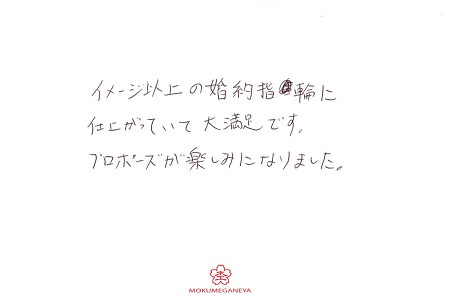 イメージ以上の婚約指輪に
仕上がっていて大満足です。
プロポーズが楽しみになりました。
MOKUMEGANEYA